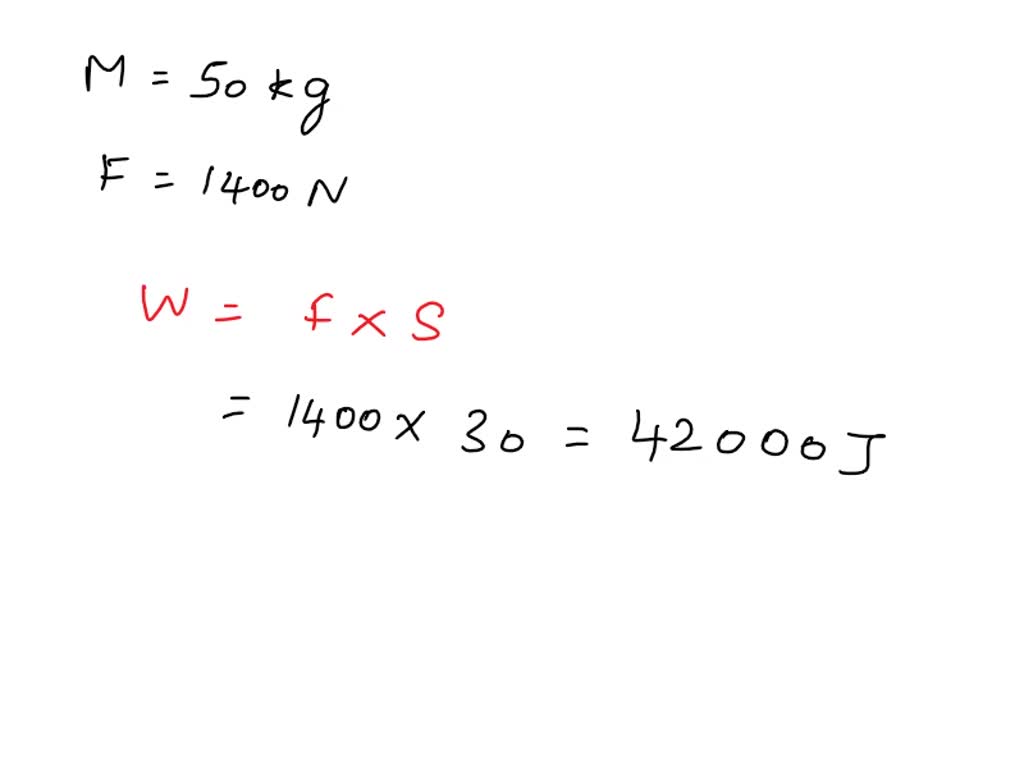 M = 50 kg
F = 1400 N
W = f x S
= 1400 x 30 = 42000 J